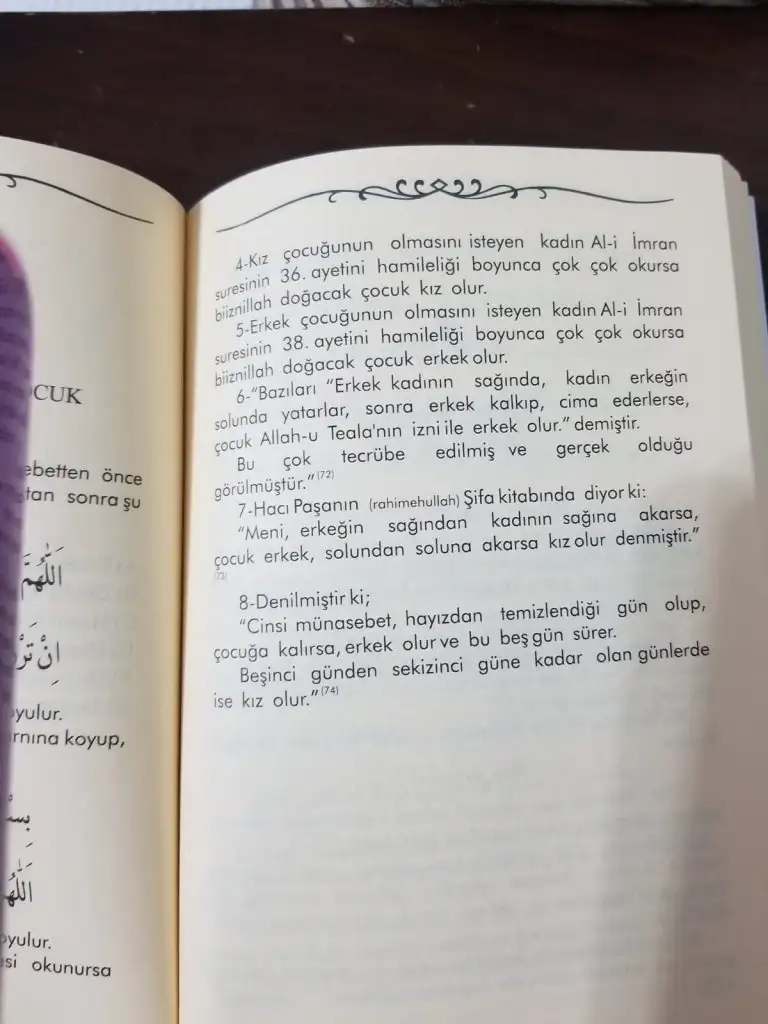 CUK
ebetten önce
tan sonra şu
اَللّٰهُمَّ
اِنْ
yulur.
rnına koyup,
بِسْ
اَللّٰهُ
oyulur.
esi okunursa
4-Kız çocuğunun olmasını isteyen kadın Al-i İmran
suresinin 36. ayetini hamileliği boyunca çok çok okursa
biiznillah doğacak çocuk kız olur.
5-Erkek çocuğunun olmasını isteyen kadın Al-i İmran
suresinin 38. ayetini hamileliği boyunca çok çok okursa
biiznillah doğacak çocuk erkek olur.
6-"Bazıları "Erkek kadının sağında, kadın erkeğin
solunda yatarlar, sonra erkek kalkıp, cima ederlerse,
çocuk Allah-u Teala'nın izni ile erkek olur." demiştir.
Bu çok tecrübe edilmiş ve gerçek olduğu
görülmüştür."(72)
7-Hacı Paşanın (rahimehullah) Şifa kitabında diyor ki:
"Meni, erkeğin sağından kadının sağına akarsa,
çocuk erkek, solundan soluna akarsa kız olur denmiştir."
(73)
8-Denilmiştir ki;
"Cinsi münasebet, hayızdan temizlendiği gün olup,
çocuğa kalırsa, erkek olur ve bu beş gün sürer.
Beşinci günden sekizinci güne kadar olan günlerde
ise kız olur."(74)